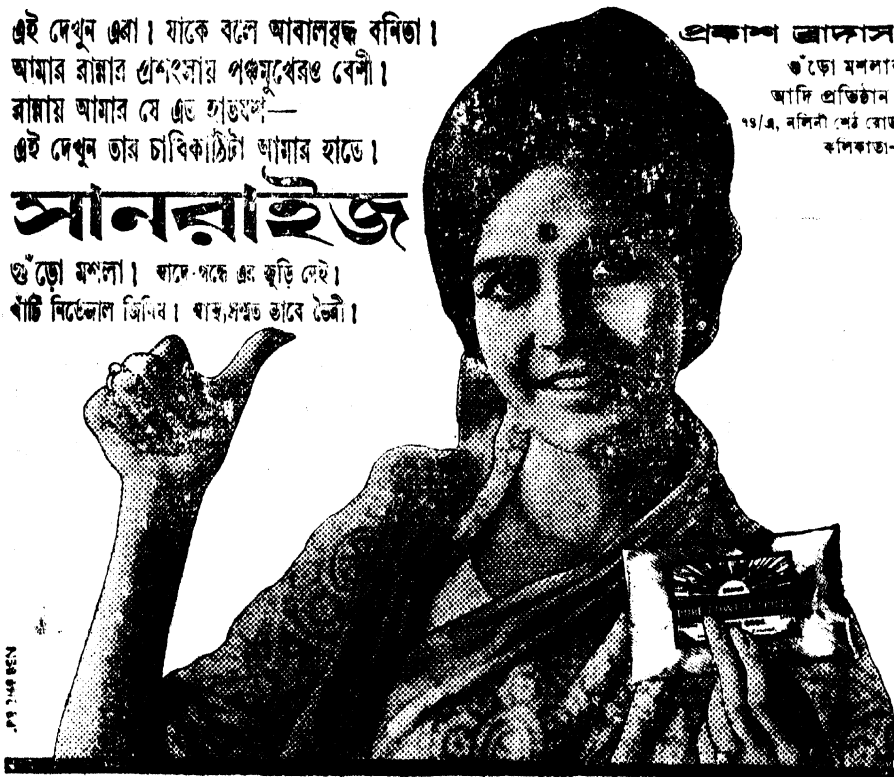 এই দেখুন এরা। যাকে বলে আবালবৃদ্ধ বনিতা।
আমার রান্নার প্রশংসায় পঞ্চমুখেরও বেশী।
রান্নায় আমার যে এত হাতযশ—
এই দেখুন তার চাবিকাঠিটা আমার হাতে।
সানরাইজ
গুঁড়ো মশলা। স্বাদে-গন্ধে এর জুড়ি নেই।
খাঁটি নির্ভেজাল জিনিষ। স্বাস্থ্যসম্মত ভাবে তৈরী।
প্রকাশ ব্রাদার্স
গুঁড়ো মশলার
আদি প্রতিষ্ঠান
৭৪/এ, নলিনী শেঠ রোড
কলিকাতা-